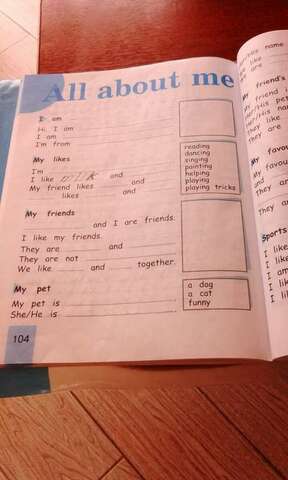 All about me
I am
Hi, I am
I am
I'm from
My likes
I'm
I like and
My friend likes and
likes and
reading
dancing
singing
painting
helping
playing
playing tricks
My friends
and I are friends.
I like my friends.
They are and
They are not
We like and together.
My pet
My pet is
She/He is
a dog
a cat
funny
104
name
like
are
My friend's
My friend i
Her/His pet
They like
They are
My favou
My favou
and
They are
They ar
Sports
I like
I like
I am
I lik
I li